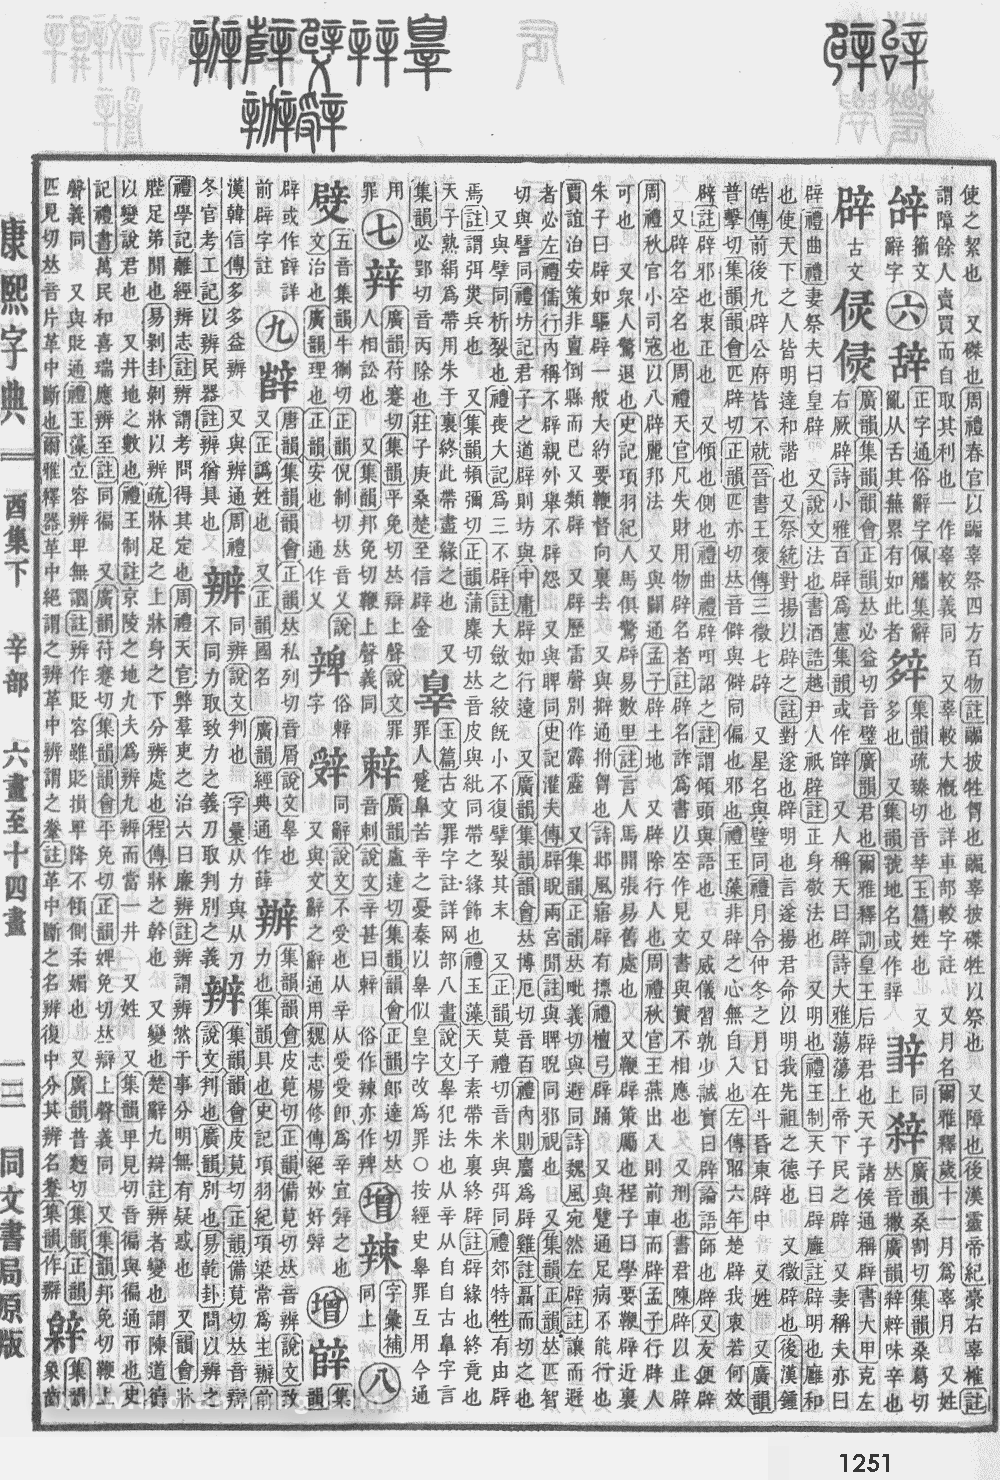 康熙字典
酉集下 辛部 六畫至十四畫
一三
同文書局原版
使之絜也 又磔也周禮春官以疈辜祭四方百物註疈披牲胷也疈辜披磔牲以祭也 又障也後漢靈帝紀豪右辜榷註
謂障餘人賣買而自取其利也 二作辜較義同 又辜較大槪也詳車部較字註 又月名爾雅釋歲十一月爲辜月 又姓
辝 籀文辭字
六
辞 正字通俗辭字佩觿集辭亂从舌其蕪累有如此者
辤 集韻疏臻切音莘玉篇姓也 又集韻號地名或作
同上
辟 古文
廣韻集韻韻會正韻𠀤必益切音璧廣韻君也爾雅釋訓皇王后辟君也天子諸侯通稱辟書太甲克左
右厥辟詩小雅百辟爲憲集韻或作 又人稱天曰辟詩大雅蕩蕩上帝下民之辟 又妻稱夫亦曰
辟禮曲禮妻祭夫曰皇辟 又說文法也書酒誥越尹人祗辟註正身敬法也 又明也禮王制天子曰辟廱註辟明也廱和
也使天下之人皆明達和諧也又祭統對揚以辟之註對遂也辟明也言遂揚君命以明我先祖之德也 又徵辟也後漢鍾
皓傳前後九辟公府皆不就晉書王褒傳三徵七辟 又星名與璧同禮月令仲冬之月日在斗昏東辟中 又姓 又廣韻
普擊切集韻韻會匹辟切正韻匹亦切𠀤音僻與僻同偏也邪也禮玉藻非辟之心無自入也左傳昭六年楚辟我衷若何效
辟註辟邪也衷正也 又傾也側也禮曲禮辟咡詔之註謂傾頭與語也 又威儀習孰少誠實曰辟論語師也辟 又友便辟
又辟名空名也周禮天官凡失財用物辟名者註辟名詐爲書以空作見文書與實不相應也 又刑也書君陳辟以止辟
周禮秋官小司寇以八辟麗邦法 又與闢通孟子辟土地 又辟除行人也周禮秋官王燕出入則前車而辟孟子行辟人
可也 又眾人驚退也史記項羽紀人馬俱驚辟易數里註言人馬開張易舊處也 又鞭辟策屬也程子曰學要鞭辟近裏
朱子曰辟如驅辟一般大約要鞭督向裏去 又與擗通拊胷也詩邶風寤辟有摽禮檀弓辟踊 又與躄通足病不能行也
賈誼治安策非亶倒縣而已又類辟 又辟歷雷聲別作霹靂 又集韻正韻𠀤毗義切與避同詩魏風宛然左辟註讓而避
者必左禮儒行內稱不辟親外舉不辟怨 又與睥同史記灌夫傳辟睨兩宮閒註與睥睨同邪視也 又集韻正韻𠀤匹智
切與譬同禮坊記君子之道辟則坊與中庸辟如行遠 又廣韻集韻韻會𠀤博厄切音百禮內則麕爲辟雞註聶而切之也
又與擘同析裂也禮喪大記爲三不辟註大斂之絞旣小不復擘裂其末 又正韻莫禮切音米與弭同禮郊特牲有由辟
焉註謂弭災兵也 又集韻頻彌切正韻蒲麋切𠀤音皮與紕同帶之緣飾也禮玉藻天子素帶朱裏終辟註辟緣也終竟也
天子熟絹爲帶用朱于裏終此帶盡緣之也 又
集韻必郢切音丙除也莊子庚桑楚至信辟金
辠 玉篇古文罪字註詳网部八畫說文辠犯法也从辛从自自古鼻字言
罪人蹙鼻苦辛之憂秦以辠似皇字改爲罪○按經史辠罪互用今通
用
罪
七
辡 廣韻符蹇切集韻平免切𠀤辯上聲說文罪人相訟也 又集韻邦免切鞭上聲義同
辢 廣韻盧達切集韻韻會正韻郎達切𠀤音剌說文辛甚曰辢 俗作辣亦作
增 辣 字彙補同上
八
五音集韻牛制切正韻倪制切𠀤音乂說文治也廣韻理也正韻安也 通作乂
俗辤字
辤 同辭說文不受也从辛从受受卽爲辛宜辤之也 又與文辭之辭通用魏志楊修傳絕妙好辤
增
集韻
辟或作 詳
前辟字註
九
唐韻集韻韻會正韻𠀤私列切音屑說文辠也
又正譌姓也 又正韻國名 廣韻經典通作薛
辦 集韻韻會皮莧切正韻備莧切𠀤音辨說文致
力也集韻具也史記項羽紀項梁常爲主辦前
漢韓信傳多多益辦 又與辨通周禮
冬官考工記以辨民器註辨猶具也
辧 同辨說文判也 字彙从力與从刀
不同力取致力之義刀取判別之義
辨 集韻韻會皮莧切正韻備莧切𠀤音辯
說文判也廣韻別也易乾卦問以辨之
禮學記離經辨志註辨謂考問得其定也周禮天官弊羣吏之治六曰廉辨註辨謂辨然于事分明無有疑惑也 又韻會牀
脛足第閒也易剝卦剝牀以辨疏牀足之上牀身之下分辨處也程傳牀之幹也 又變也楚辭九辯註辨者變也謂陳道德
以變說君也 又井地之數也禮王制註京陵之地九夫爲辨九辨而當一井 又姓 又集韻𤰞見切音徧與徧通帀也史
記禮書萬民和喜瑞應辨至註同徧 又廣韻符蹇切集韻韻會平免切正韻婢免切𠀤辯上聲義同 又集韻邦免切鞭上
聲義同 又與貶通禮玉藻立容辨𤰞無讇註辨作貶容雖貶損𤰞降不傾側柔媚也 又廣韻普麪切集韻正韻
匹見切𠀤音片革中斷也爾雅釋器革中絕謂之辨革中辨謂之韏註革中斷之名辨復中分其辨名韏集韻作
1251